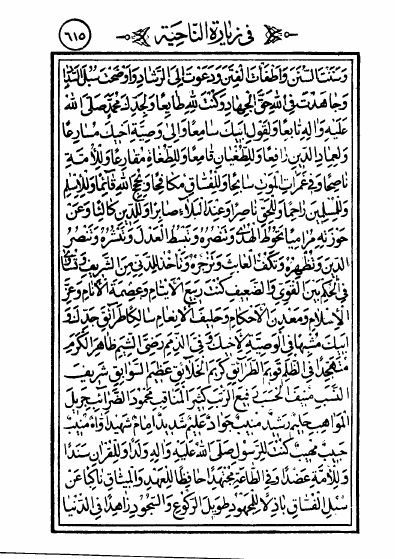 فی زیارة الناحیة
٦١٥
وَسَنَنْتَ السُّنَنَ وَاَطْفَاْتَ الْفِتَنَ وَدَعَوْتَ اِلَى الرَّشَادِ وَاَوْضَحْتَ سُبُلَ السَّدَادِ
وَجَاهَدْتَ فِى اللهِ حَقَّ الْجِهَادِ وَكُنْتَ لِلّٰهِ طَائِعًا وَلِجَدِّكَ مُحَمَّدٍ صَلَّى اللهُ
عَلَيْهِ وَاٰلِهِ تَابِعًا وَلِقَوْلِ اَبيكَ سَامِعًا وَاِلٰى وَصِيَّةِ اَخيكَ مُسَارِعًا
وَلِعِمَادِ الدّينِ رَافِعًا وَلِلطُّغْيَانِ قَامِعًا وَلِلطُّغَاةِ مُقَارِعًا وَلِلْاُمَّةِ
نَاصِحًا وَفى غَمَرَاتِ الْمَوْتِ سَابِحًا وَلِلْفُسَّاقِ مُكَافِحًا وَبِحُجَجِ اللهِ قَائِمًا وَلِلْاِسْلَامِ
وَالْمُسْلِمينَ رَاحِمًا وَلِلْحَقِّ نَاصِرًا وَعِنْدَ الْبَلَاءِ صَابِرًا وَلِلدّينِ كَالِئًا وَعَنْ
حَوْزَتِهِ مُرَامِيًا تَحُوطُ الْهُدٰى وَتَنْصُرُهُ وَتَبْسُطُ الْعَدْلَ وَتَنْشُرُهُ وَتَنْصُرُ
الدّينَ وَتُظْهِرُهُ وَتَكُفُّ الْعَابِثَ وَتَزْجُرُهُ وَتَاْخُذُ لِلدَّنِىِّ مِنَ الشَّريفِ وَتُسَاوى
فِى الْحُكْمِ بَيْنَ الْقَوِىِّ وَالضَّعيفِ كُنْتَ رَبيعَ الْاَيْتَامِ وَعِصْمَةَ الْاَنَامِ وَعِزَّ
الْاِسْلَامِ وَمَعْدِنَ الْاَحْكَامِ وَحَليفَ الْاِنْعَامِ سَالِكًا طَرَائِقَ جَدِّكَ وَ
اَبيكَ مُشْبِهًا فِى الْوَصِيَّةِ لِاَخيكَ وَفِىَّ الذِّمَمِ رَضِىَّ الشِّيَمِ ظَاهِرَ الْكَرَمِ
مُتَهَجِّدًا فِى الظُّلَمِ قَويمَ الطَّرَائِقِ كَريمَ الْخَلَائِقِ عَظيمَ السَّوَابِقِ شَريفَ
النَّسَبِ مُنيفَ الْحَسَبِ رَفيعَ الرُّتَبِ كَثيرَ الْمَنَاقِبِ مَحْمُودَ الضَّرَائِبِ جَزيلَ
الْمَوَاهِبِ حَليمٌ رَشيدٌ مُنيبٌ جَوَادٌ عَليمٌ شَديدٌ اِمَامٌ شَهيدٌ اَوَّاهٌ مُنيبٌ
حَبيبٌ مُهيبٌ كُنْتَ لِلرَّسُولِ صَلَّى اللهُ عَلَيْهِ وَاٰلِهِ وَلَدًا وَلِلْقُرْاٰنِ سَنَدًا
وَلِلْاُمَّةِ عَضُدًا وَفِى الطَّاعَةِ مُجْتَهِدًا حَافِظًا لِلْعَهْدِ وَالْميثَاقِ نَاكِبًا عَنْ
سُبُلِ الْفُسَّاقِ بَاذِلًا لِلْمَجْهُودِ طَويلَ الرُّكُوعِ وَالسُّجُودِ زَاهِدًا فِى الدُّنْيَا